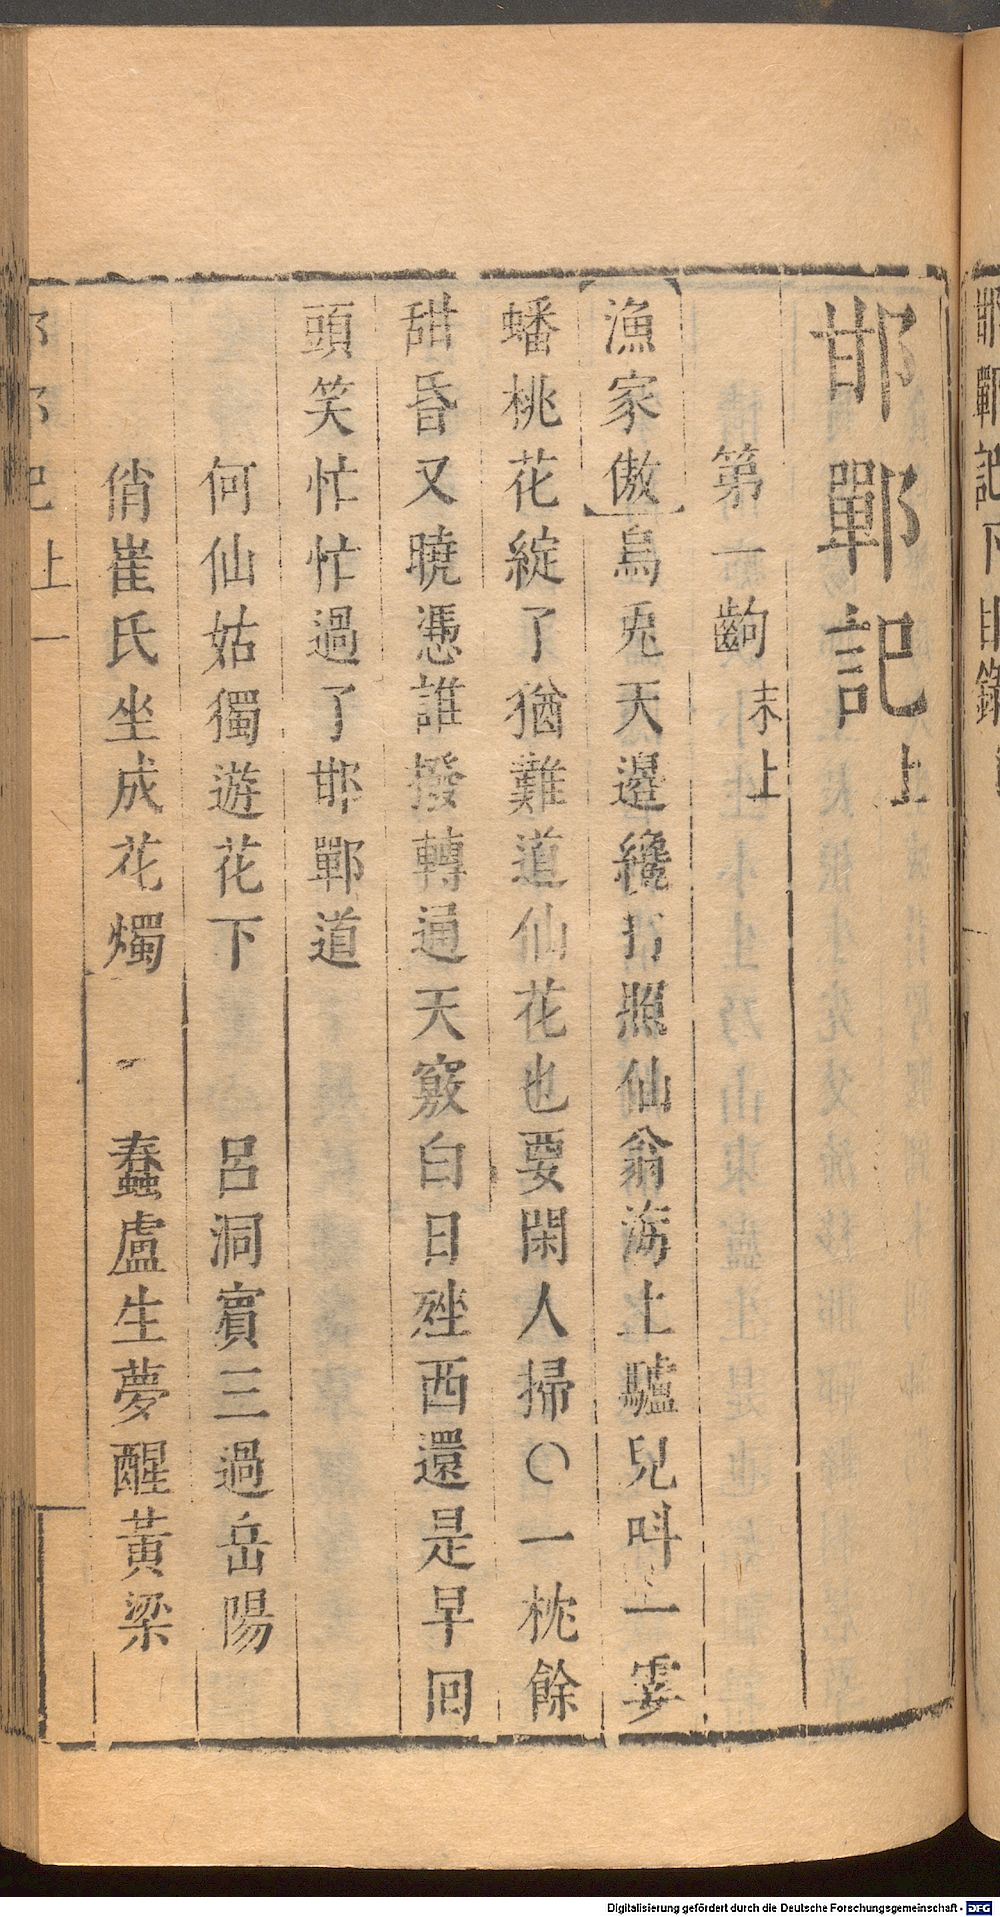 邯鄲記下目錄
邯鄲記上
第一齣末上
【漁家傲】烏兎天邊纔打照仙翁海上驢兒叫一霎
蟠桃花綻了猶難道仙花也要閑人掃○一枕餘
甜昏又曉憑誰撥轉通天竅白日㘸西還是早囘
頭笑忙忙過了邯鄲道
何仙姑獨遊花下　呂洞賓三過岳陽
俏崔氏坐成花燭　蠢盧生夢醒黃粱
上一
Digitalisierung gefördert durch die Deutsche Forschungsgemeinschaft - DFG